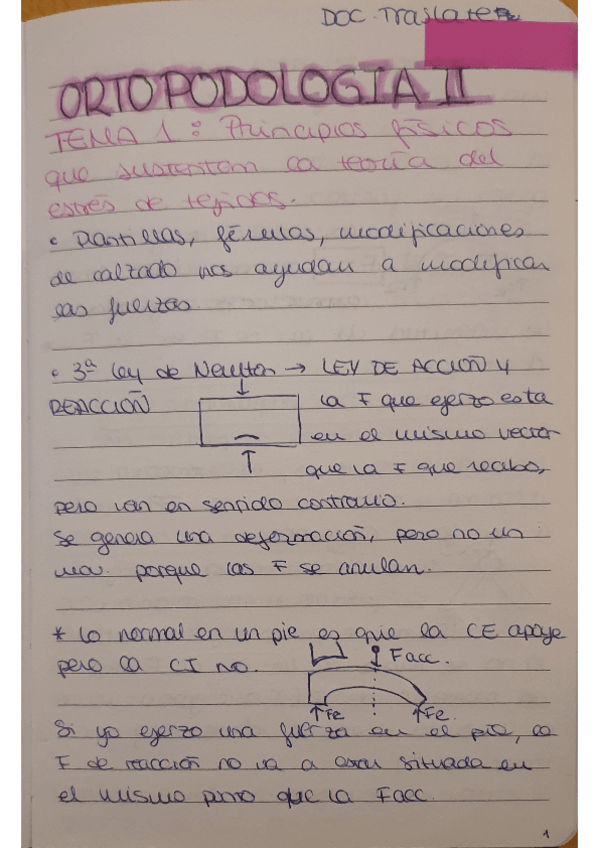 DOC. Traslate
ORTOPODOLOGÍA II
TEMA 1: Principios físicos
que sustentan la teoría del
estrés de tejidos.
• Plantillas, férulas, modificaciones
de calzado nos ayudan a modificar
las fuerzas
• 3ª ley de Newton → LEY DE ACCIÓN y
REACCIÓN
la F que ejerzo esta
en el mismo vector
que la F que recibo,
pero van en sentido contrario.
Se genera una deformación, pero no un
mov. porque las F se anulan.
* Lo normal en un pie es que la CE apoye
pero la CI no.
Facc.
↑Fe ↑Fe.
Si yo ejerzo una fuerza en el pie, la
F de reacción no va a estar situada en
el mismo punto que la Facc.
1